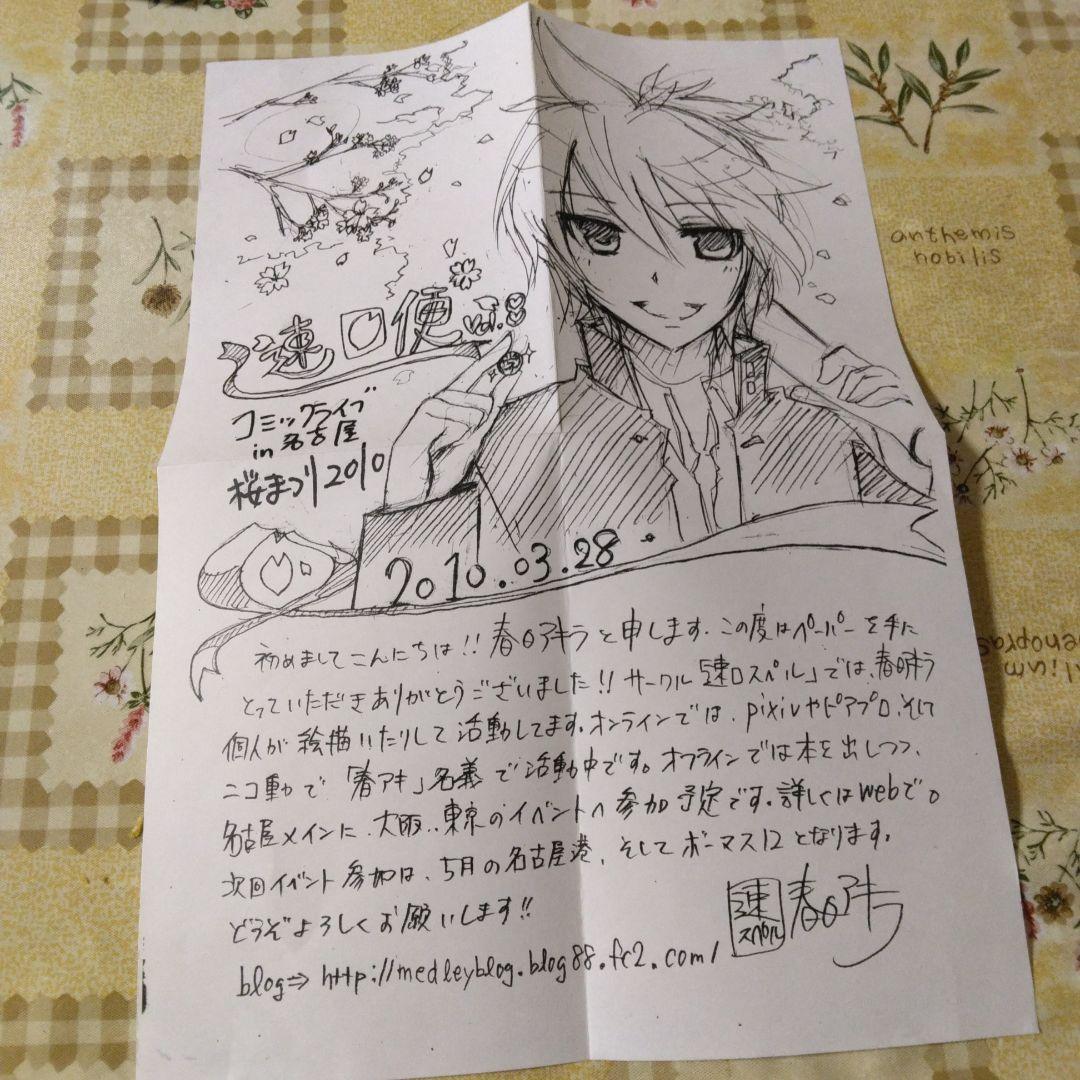 速口便 vol.8
コミックライブ
in 名古屋
桜まつり2010
2010.03.28
初めましてこんにちは!! 春日アキラと申します. この度はペーパーを手に
とっていただきありがとうございました!! サークル「速口スペル」では、春日アキラ
個人が絵描いたりして活動してます。オンラインでは、pixivやピアプロ、そして
ニコ動で「春アキ」名義で活動中です。オフラインでは本を出しつつ、
名古屋メインに、大阪、東京のイベントへ参加予定です。詳しくはwebで。
次回イベント参加は、5月の名古屋港、そしてボーマス12となります。
どうぞよろしくお願いします!!
速口スペル 春日アキラ
blog⇒ http://medleyblog.blog88.fc2.com/
anthemis
nobilis